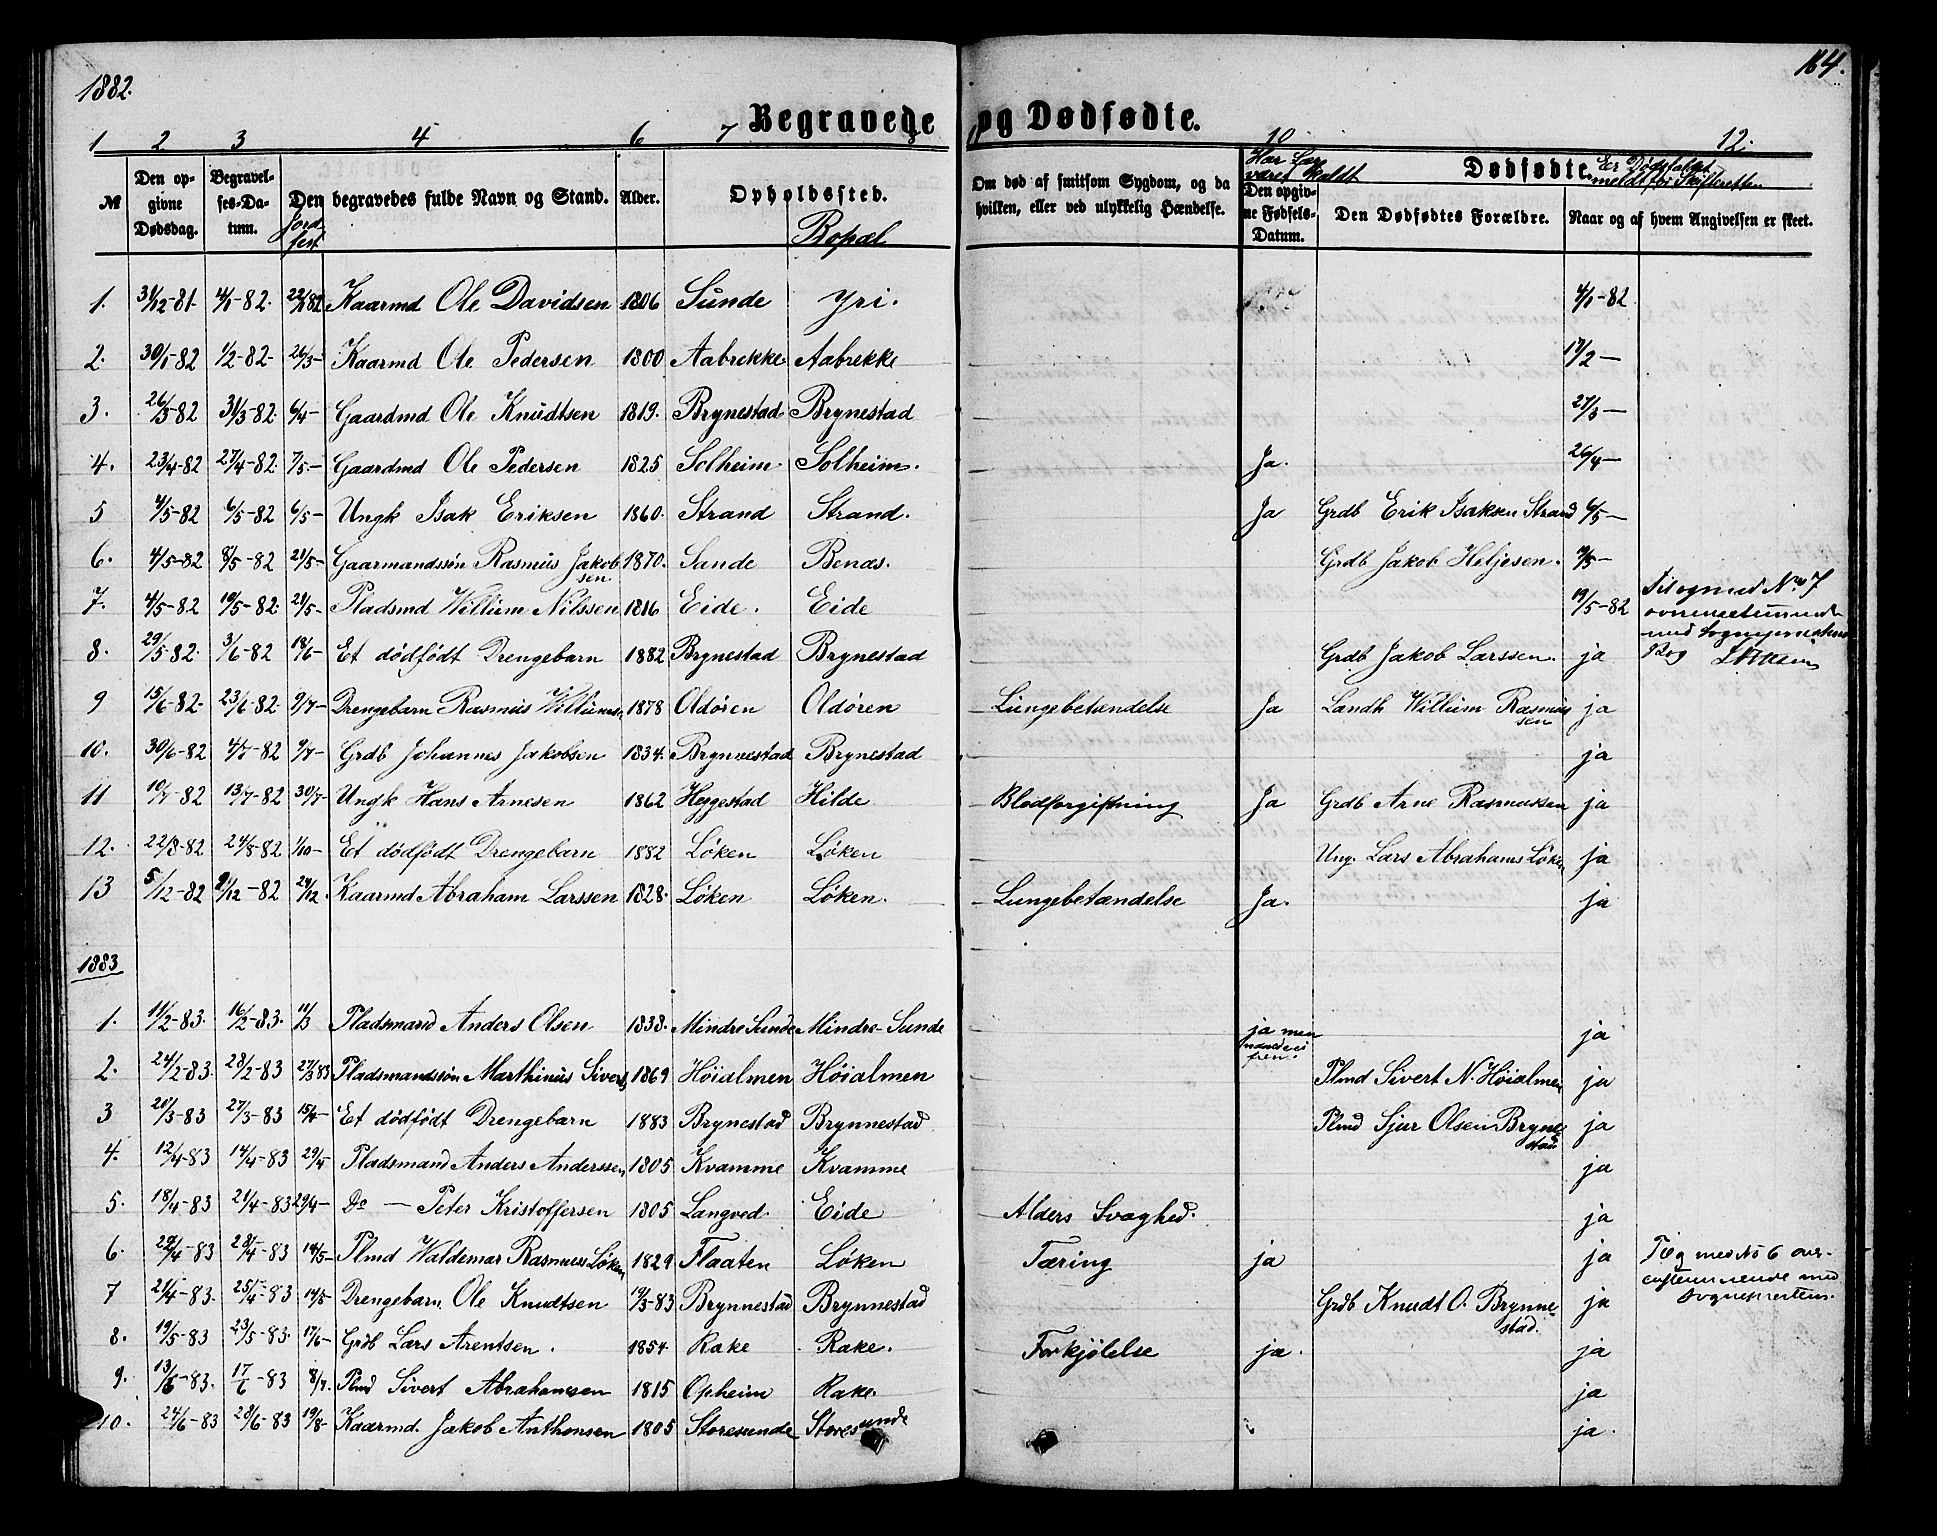 1882.
164.
Begravede og Dødfødte.
1 2 3 4 6 7 10 12.
№
Den opgivne Dødsdag.
Begravelses-Datum.
Jordfest
Den begravedes fulde Navn og Stand.
Alder.
Opholdssted.
Bopæl
Om død af smitsom Sygdom, og da hvilken, eller ved ulykkelig Hændelse.
Har Læge været kaldt
Den opgivne Fødsels-Datum.
Dødfødte.
Den Dødfødtes Forældre.
Er Dødsfaldet meldt for Skifteretten
Naar og af hvem Angivelsen er skeet.
1. 31/12-81. 4/1-82. Kaarmd Ole Davidsen 1806 Sunde Yri. 4/1-82
2. 30/1-82 1/2-82. 26/3- Kaarmd Ole Pedersen 1800 Aabrekke Aabrekke 17/2-
3. 26/3-82 31/3-82. 6/4- Gaardmd Ole Knudtsen 1819. Brynestad Brynestad 27/3-
4. 23/4-82 27/4-82. 7/5- Gaardmd Ole Pedersen 1825 Solheim Solheim. Ja. 26/4-
5 4/5-82 6/5-82 6/5- Ungk Isak Eriksen 1860. Strand Strand. Ja Grdb Erik Isaksen Strand 6/5-
6. 4/5-82 8/5-82 21/5- Gaarmandssön Rasmus Jakobsen 1870. Sande Benæs. Grdb Jakob Heljesen.
7. 4/5-82 10/5-82. 21/5- Pladsmd Willum Nilssen 1816 Eide. Eide 19/5-82 Til og med No 7
8. 29/5-82. 3/6-82 18/6- Et dödfödt Drengebarn 1882 Brynestad Brynestad Grdb Jakob Larssen. ja
9 15/6-82. 23/6-82. 9/7- Drengebarn Rasmus Willumsen 1878 Oldören Oldören Lungebetændelse Ja Landh Willum Rasmussen ja
10. 30/6-82 4/7-82 9/7- Grdb Johannes Jakobsen 1834. Brynnestad Brynestad ja
11 10/7-82 13/7-82 30/7- Ungk Hans Arnesen 1862 Heggestad Hilde Blodforgiftning Ja Grdb Arne Rasmussen ja
12. 22/8-82 24/8-82 1/10- Et dödfödt Drengebarn 1882 Löken Löken Ung. Lars Abrahams Löken ja
13 5/12-82 9/12-82 24/12. Kaarmd Abraham Larssen 1828. Löken Löken. Lungebetændelse Ja. ja
1883
1. 11/2-83. 16/2-83. 11/3 Pladsmand Anders Olsen 1838. Mindre Sunde Mindre Sunde ja men ja
2. 24/2-83. 28/2-83 27/3 83 Pladsmandssön Marthinus Siverts 1869 Höialmen Höialmen Plmd Sivert N. Höialmen ja
3 20/3-83 27/3-83 15/4- Et dödfödt Drengebarn 1883 Brynestad Brynnestad Plmd Sjur Olsen Brynestad ja
4. 12/4-83 14/4-83 29/4 Pladsmand Anders Anderssen 1805 Kvamme Kvamme ja
5. 18/4-83 21/4-83 29/4- Do — Peter Kristoffersen 1805 Langved. Eide Alders Svaghed. ja
6. 24/4-83 28/4-83 14/5- Plmd Waldemar Rasmussen Löken 1829 Flaaten Löken Tæring ja ja T og med No 6 over-
7 21/4-83. 25/4-83 14/5 Drengebarn Ole Knudtsen 19/3-83 Brynnestad Brynnestad Grdb Knudt O. Brynnestad. ja
8. 19/5-83 23/5-83. 17/6- Grdb Lars Arentsen. 1854 Rake Rake. Forkjölelse ja. ja
9. 13/6-83. 17/6-83 8/7. Plmd Sivert Abrahamsen 1815 Opheim Rake. ja
10. 24/6-83 28/6-83 19/8- Kaarmd. Jakob Anthonsen 1805 Storesunde Storesunde ja.